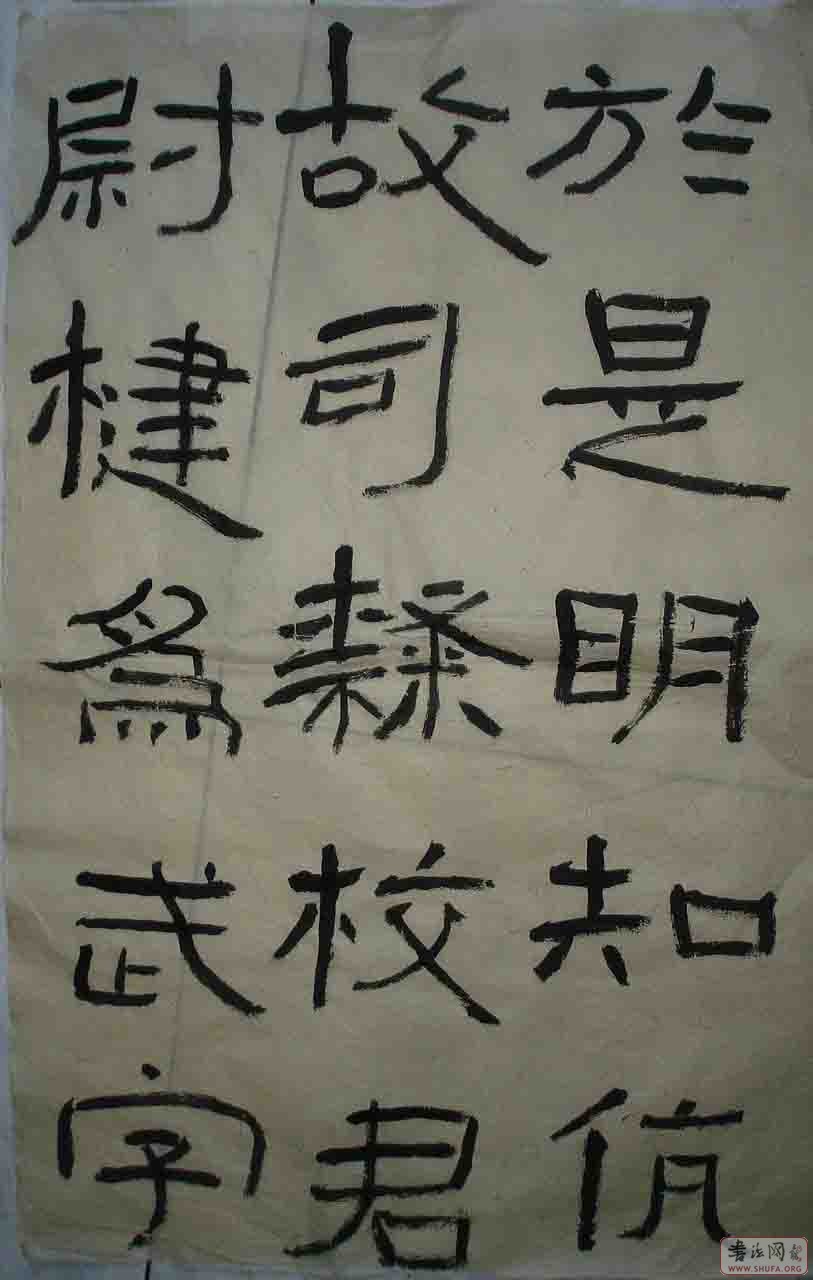 於是明知伉
故司隸校君
尉楗為武字
書法網
WWW.SHUFA.ORG